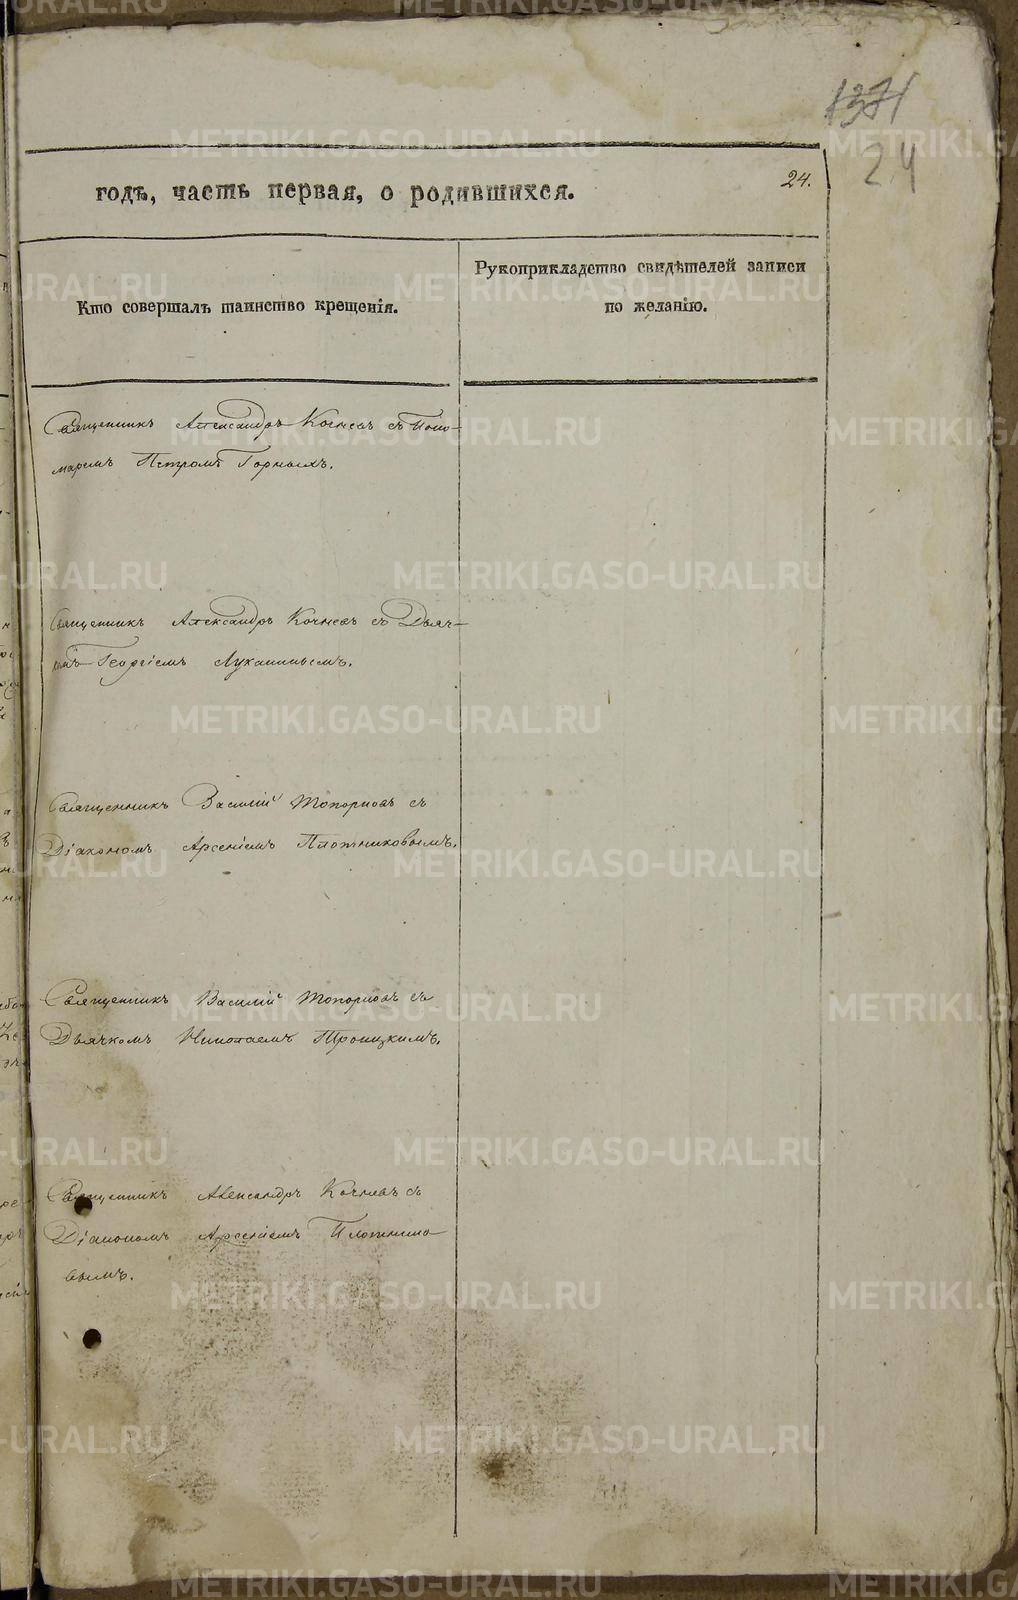 1371
24
24.
годѣ, часть первая, о родившихся.
Кто совершалъ таинство крещенія.
Рукоприкладство свидѣтелей записи
по желанію.
Священникъ Александръ Кочневъ съ Поно-
маремъ Петромъ Горныхъ.
Священникъ Александръ Кочневъ съ Дьяч-
комъ Георгіемъ Луканинымъ.
Священникъ Василій Топорковъ съ
Діакономъ Арсеніемъ Плотниковымъ.
Священникъ Василій Топорковъ съ
Дьячкомъ Николаемъ Троицкимъ.
Священникъ Александръ Кочневъ съ
Діакономъ Арсеніемъ Плотнико-
вымъ.
METRIKI.GASO-URAL.RU